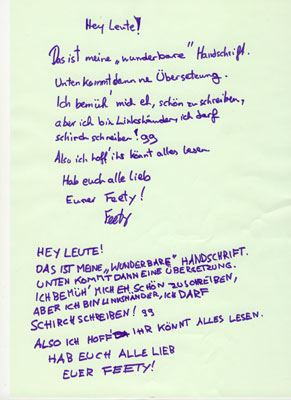 Hey Leute!
Das ist meine „wunderbare" Handschrift.
Unten kommt dann ne Übersetzung.
Ich bemüh' mich eh, schön zu schreiben,
aber ich bin Linkshänder, ich darf
schirch schreiben! gg
Also ich hoff' ihr könnt alles lesen
Hab euch alle lieb
Eurer Feety!
Feety
HEY LEUTE!
DAS IST MEINE „WUNDERBARE" HANDSCHRIFT.
UNTEN KOMMT DANN EINE ÜBERSETZUNG.
ICH BEMÜH' MICH EH, SCHÖN ZU SCHREIBEN,
ABER ICH BIN LINKSHÄNDER, ICH DARF
SCHIRCH SCHREIBEN! gg
ALSO ICH HOFF' IHR KÖNNT ALLES LESEN.
HAB EUCH ALLE LIEB
EUER FEETY!